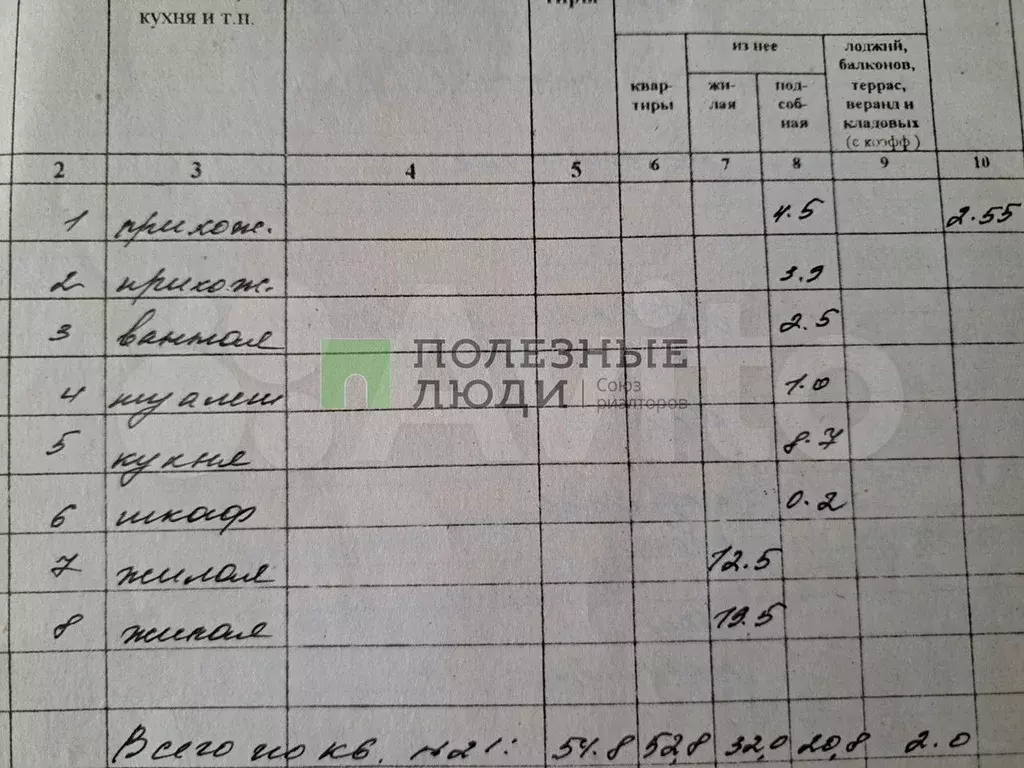 кухня и т.п.
из нее
лоджий,
балконов,
террас,
веранд и
кладовых
(с коэфф)
квар-
тиры
жи-
лая
под-
соб-
ная
2 3 4 5 6 7 8 9 10
1 прихож. 4.5 2.55
2 прихож. 3.9
3 ванная 2.5
ПОЛЕЗНЫЕ
ЛЮДИ
Союз
риалторов
Avito
4 туалет 1.0
5 кухня 8.7
6 шкаф 0.2
7 жилая 12.5
8 жилая 19.5
Всего по кв. №21: 54.8 52,8 32,0 20,8 2.0